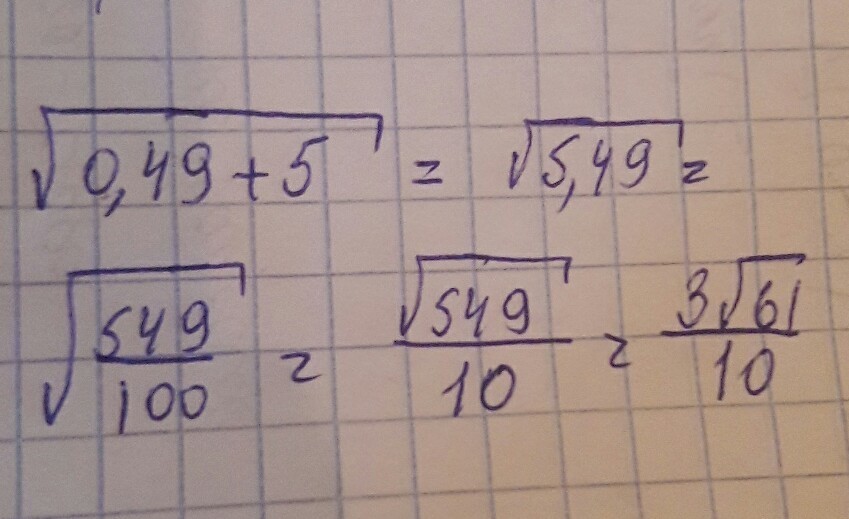 √(0,49+5) = √5,49 =
√(549/100) = √549/10 = 3√61/10